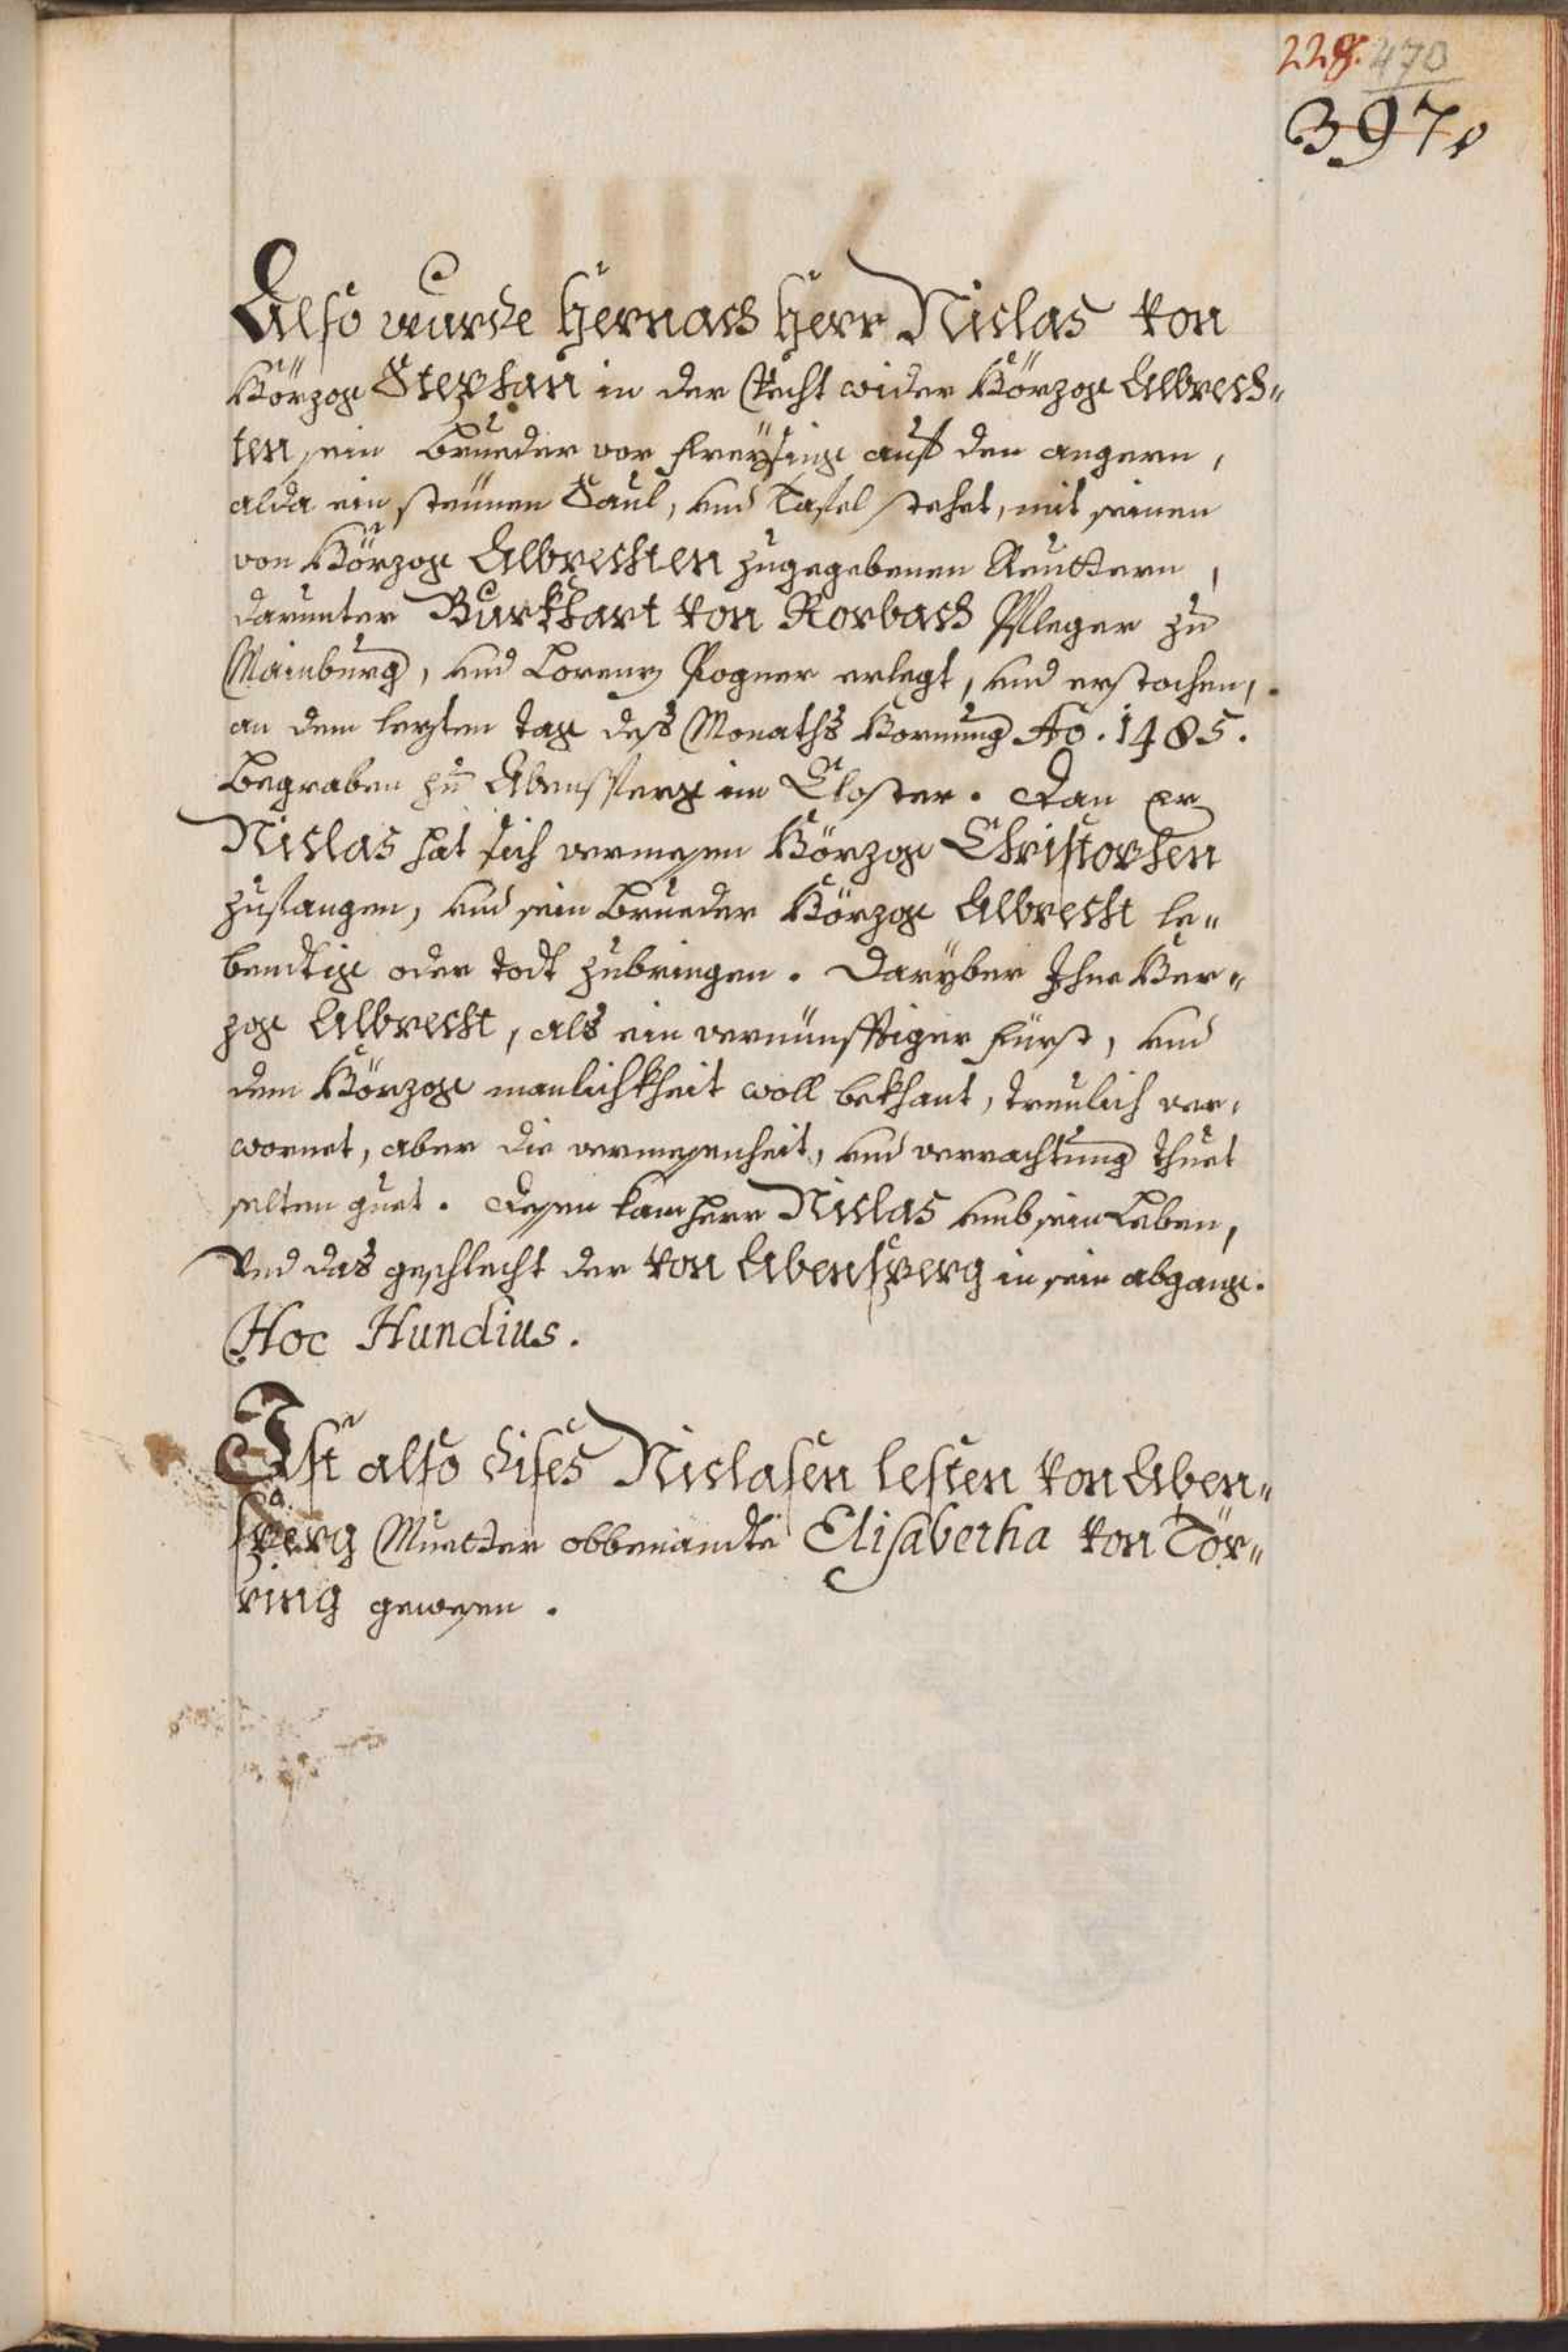 228. 470
397.
Also wurde hernach herr Niclas von
Hörzog Stephan in der Vecht wider Hörzog Albrech"
ten sein Brueder vor Freÿsing auf den angern,
alda ein steinen Saul, vnd Tafel stehet, mit seinen
von Hörzog Albrechten zugegebenen Reuttern,
darunter Burkhart von Rorbach Pfleger zu
Mainburg, vnd Lorenz Pogner erlegt, vnd erstochen,
an dem lezten tag deß Monaths Hornung Ao. 1485.
Begraben zu Abensperg im Closter. Dan er
Niclas hat sich vermessen Hörzog Christophen
zufangen, vnd sein Brueder Hörzog Albrecht le"
bendtig oder todt zubringen. Darÿber Ihne Her"
zog Albrecht, als ein vernünfftiger Fürst, vnd
dem Hörzog manlichkheit woll bekhant, treulich ver"
wornet, aber die vermessenheit, vnd verrachtung thuet
selten guet. Dessen kam herr Niclas vmb sein Leben,
Vnd das geschlecht der von Abensperg in sein abgang.
Hoc Hundius.
Ist also dises Niclasen lesten von Aben"
sperg Muetter obbenamdte Elisabetha von Tör"
ring gewesen.